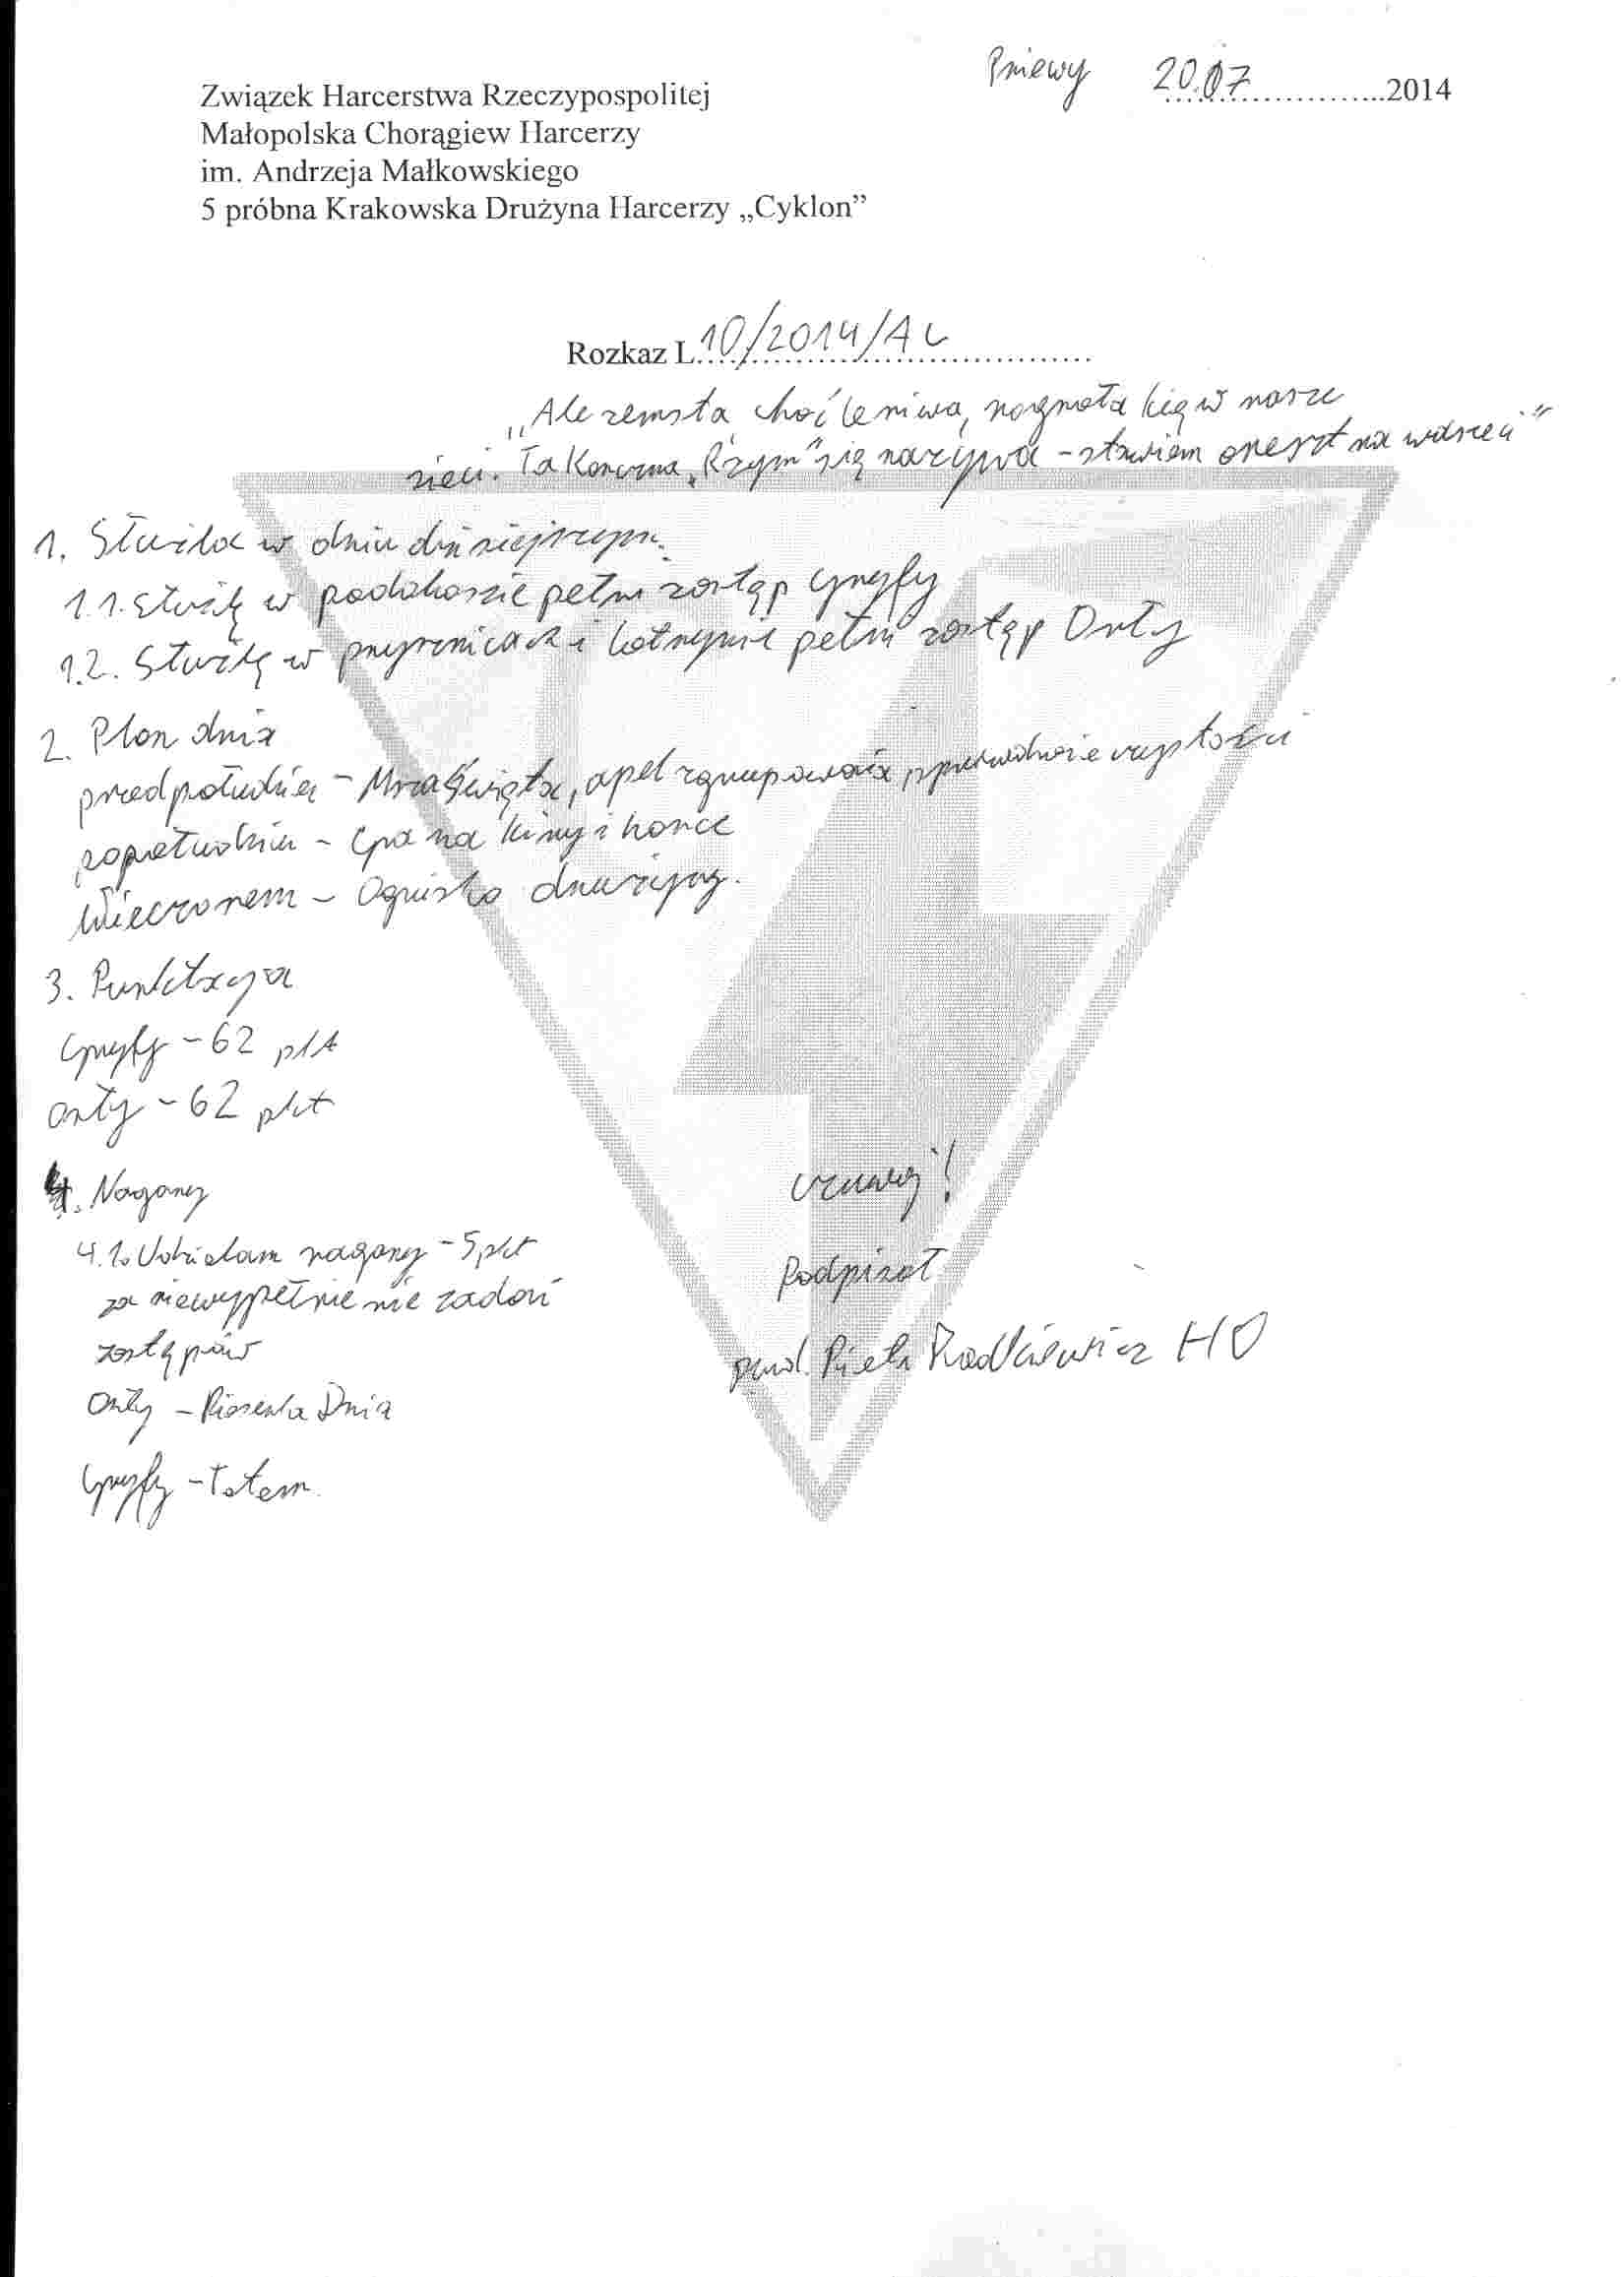 Pniewy 20.07.2014
Związek Harcerstwa Rzeczypospolitej
Małopolska Chorągiew Harcerzy
im. Andrzeja Małkowskiego
5 próbna Krakowska Drużyna Harcerzy „Cyklon”
Rozkaz L. 10/2014/AL
„Ale zemsta choć leniwa, nagnała Cię w nasze
sieci. Ta Konczna „Rżym” się nazywa – stawiam areszt na waszeci”
1. Służba w dniu dzisiejszym.
1.1. Służbę w podobozie pełni zastęp Gryfy
1.2. Służbę w prysznicach i latrynie pełni zastęp Orły
2. Plan dnia
przedpołudnie – Msza Święta, apel zgrupowania, sprawdzanie czystości
popołudniu – Gra na kimy i konce
Wieczorem – Ognisko drużyny.
3. Punktacja
Gryfy – 62 pkt
Orły – 62 pkt
4. Nagany
4.1. Udzielam nagany – 5 pkt
za niewypełnienie zadań
zastępów
Orły – Piosenka Dnia
Gryfy – Totem.
Czuwaj!
Podpisał
pwd. Piotr Radkiewicz HO